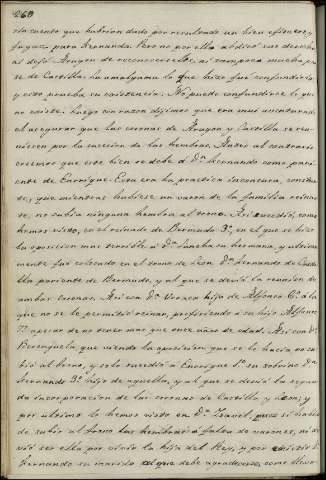 260
rramiento que hubieran dado por resultado un bien efímero y
fugaz para Fernando. Pero no por ello abdicó sus derechos
ni dejó Aragon de reconocerselos, ni tampoco mucha par-
te de Castilla. La amalgama lo que hizo fué confundirlo,
y esto prueba su existencia. No puede confundirse lo que
no existe. Luego con razon dijimos que era muy aventurado
el asegurar que las coronas de Aragon y Castilla se reu-
niesen por la sucesion de las hembras. Antes al contrario
creemos que este bien se debe á Dn. Fernando como pari-
ente de Enrique. Esta era la practica inconcusa, constan-
te, que mientras hubiese un varon de la familia reinan-
te, no subia ninguna hembra al trono. Asi sucedió, como
hemos visto, en el reinado de Bermudo 3º, en el que se hizo
la oposicion mas terrible á Dª. Sancha su hermana, y ultima-
mente fué colocado en el trono de Leon Dn. Fernando de Casti-
lla pariente de Bermudo, y al que se devió la reunion de
ambas Coronas. Asi con Dª. Urraca hija de Alfonso 6º. á la
que no se le permitió reinar, prefiriendo á su hijo Alfonso
7º. apesar de no tener mas que once años de edad. Asi con Dª.
Berenguela que viendo la oposicion que se le hacia, no su-
bió al trono, y solo sucedió á Enrique 1º. su sobrino Dn.
Fernando 3º. hijo de aquella, y al que se devió la segun-
da incorporacion de las coronas de Castilla y Leon; y
por ultimo lo hemos visto en Dª. Isabel, pues si habia
de subir al trono las hembras á falta de varones, ni de-
vió ser ella por vivir la hija del Rey, y por existir Dn.
Fernando su marido al que debe agradecerse, como llevo